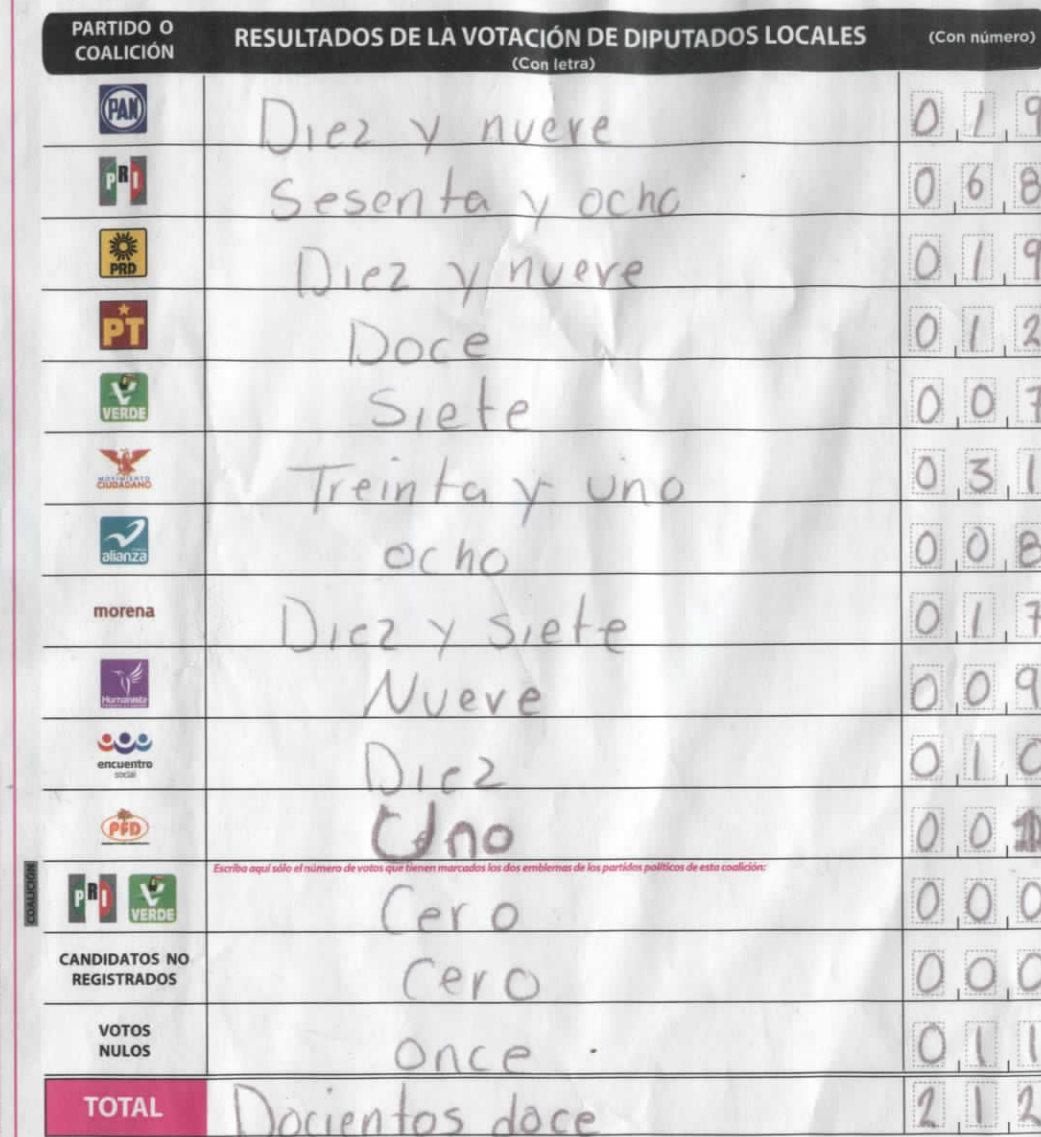 PARTIDO O COALICIÓN RESULTADOS DE LA VOTACIÓN DE DIPUTADOS LOCALES (Con letra) (Con número)
PAN Diez y nueve 019
PRI Sesenta y ocho 068
PRD Diez y nueve 019
PT Doce 012
VERDE Siete 007
MOVIMIENTO CIUDADANO Treinta y uno 031
alianza ocho 008
morena Diez y siete 017
Humanista Nueve 009
encuentro social Diez 010
PFD Uno 001
Escriba aquí sólo el número de votos que tienen marcados los dos emblemas de los partidos políticos de esta coalición:
COALICIÓN PRI VERDE Cero 000
CANDIDATOS NO REGISTRADOS Cero 000
VOTOS NULOS once 011
TOTAL Docientos doce 212